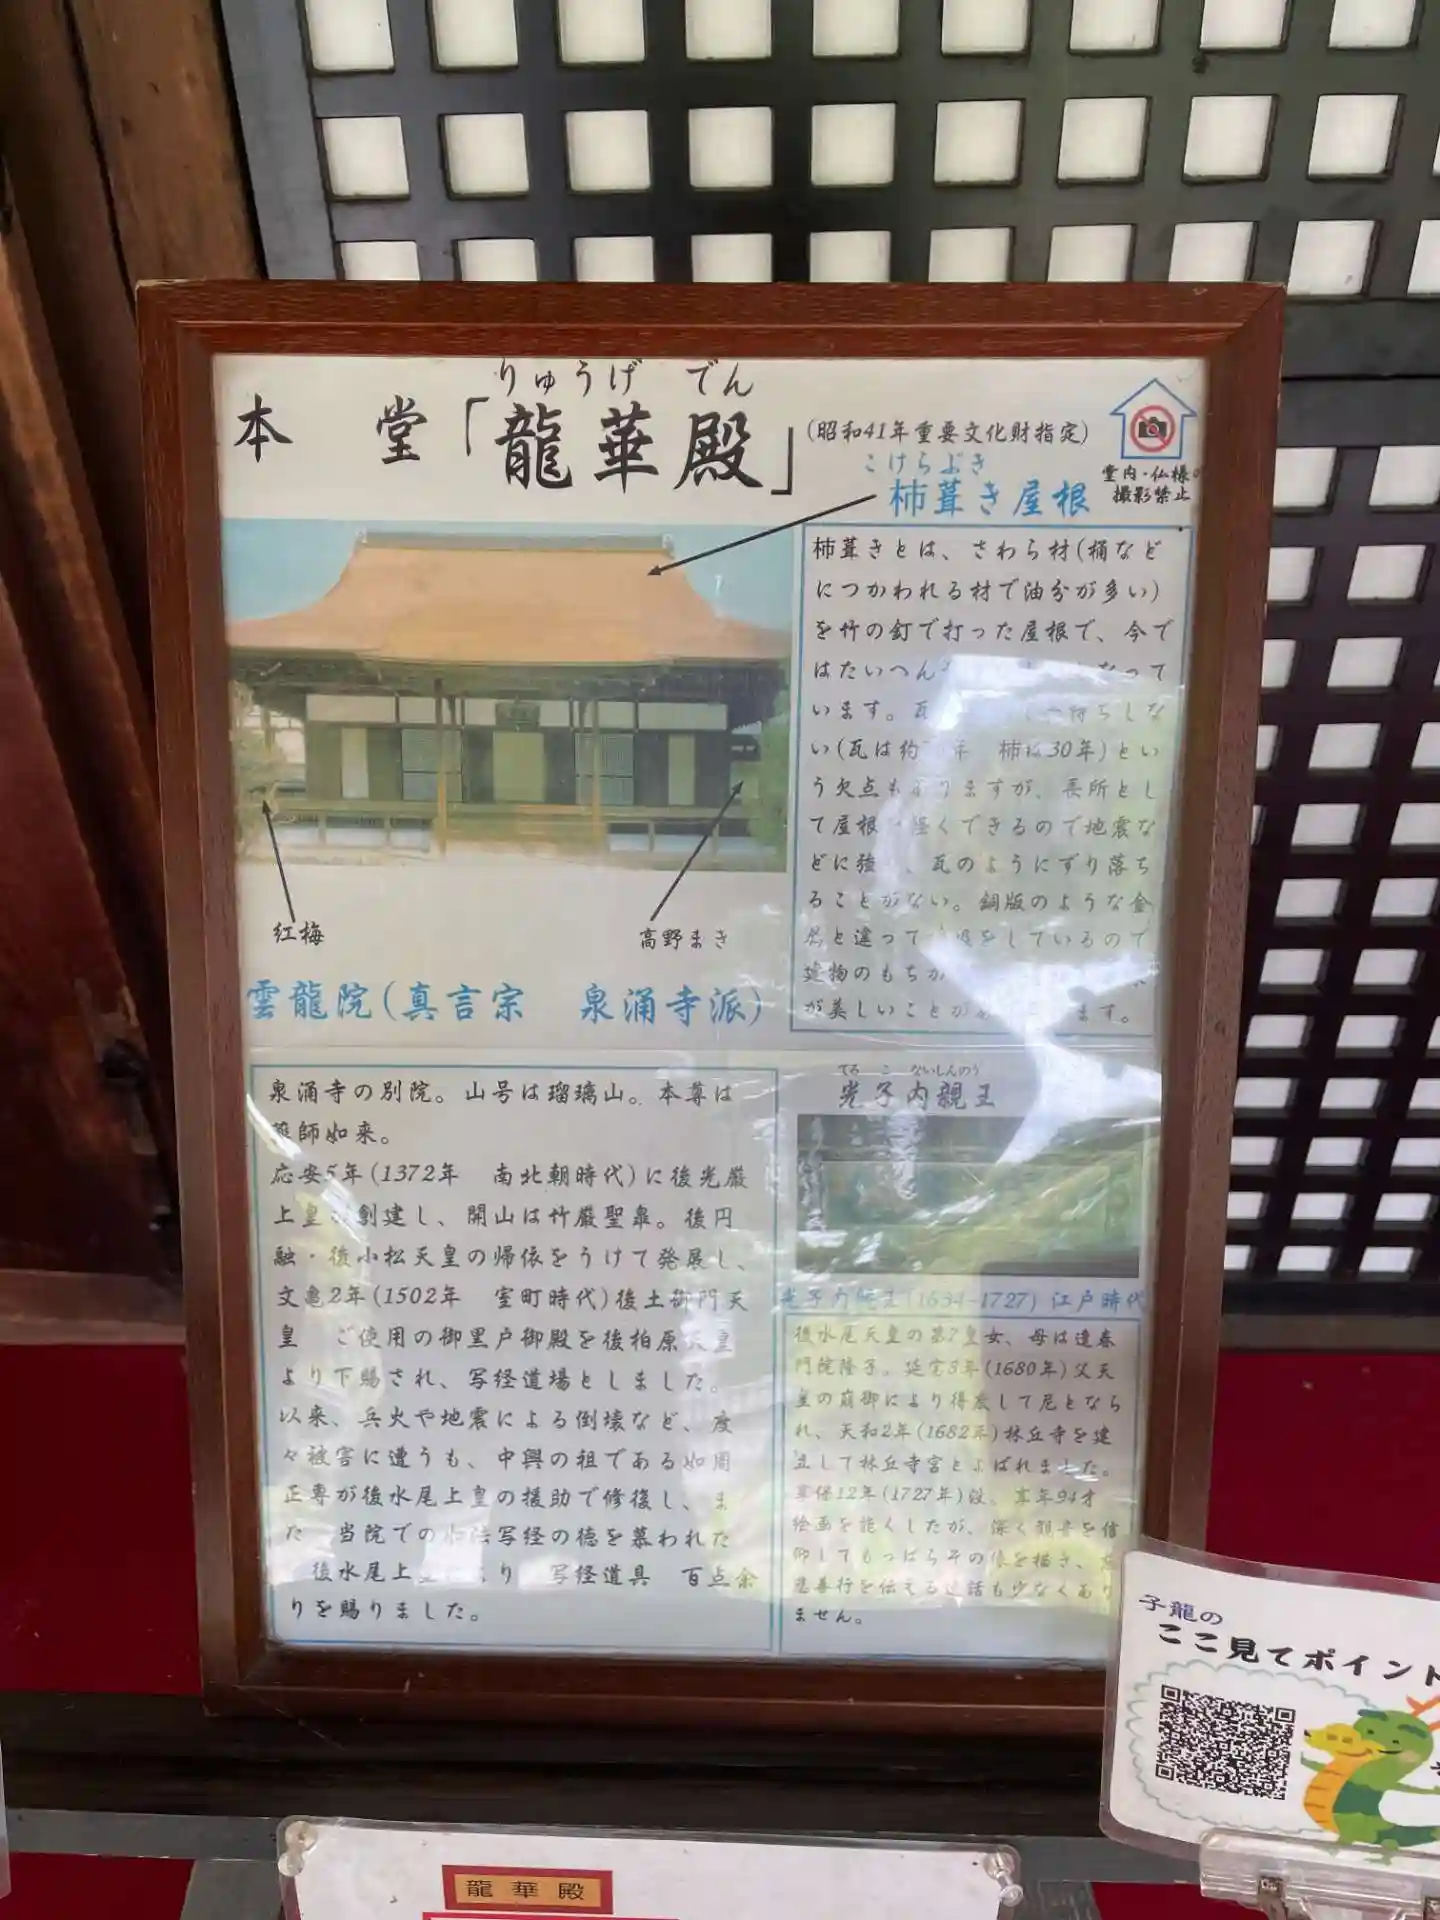 りゅうげ でん
本 堂「龍華殿」
(昭和41年重要文化財指定)
堂内・仏様の
撮影禁止
こけらぶき
杮葺き屋根
杮葺きとは、さわら材(桶など
につかわれる材で油分が多い)
を竹の釘で打った屋根で、今で
はたいへん なって
います。瓦 持ちしな
い(瓦は約 年 杮は30年)とい
う欠点もありますが、長所とし
て屋根 軽くできるので地震な
どに強 、瓦のようにずり落ち
ることがない。銅版のような金
と違って をしているので
建物のもちが
が美しいことが ます。
紅梅
高野まき
雲龍院(真言宗 泉涌寺派)
泉涌寺の別院。山号は瑠璃山。本尊は
薬師如来。
応安5年(1372年 南北朝時代)に後光厳
上皇 創建し、開山は竹巌聖皐。後円
融・後小松天皇の帰依をうけて発展し、
文亀2年(1502年 室町時代)後土御門天
皇 ご使用の御黒戸御殿を後柏原天皇
より下賜され、写経道場としました。
以来、兵火や地震による倒壊など、度
々被害に遭うも、中興の祖である如周
正専が後水尾上皇の援助で修復し、ま
た 当院での 法写経の徳を慕われた
後水尾上 より 写経道具 百点余
りを賜りました。
てる こ ないしんのう
光子内親王
光子内親王(1634-1727) 江戸時代
後水尾天皇の第7皇女、母は逢春
門院隆子。延宝8年(1680年)父天
皇の崩御により得度して尼となら
れ、天和2年(1682年)林丘寺を建
立して林丘寺宮とよばれました。
享保12年(1727年)没。享年94才
絵画を能くしたが、深く観音を信
仰してもっぱらその像を描き、
慈善行を伝える 話も少なくあり
ません。
子龍の
ここ見てポイント
龍華殿